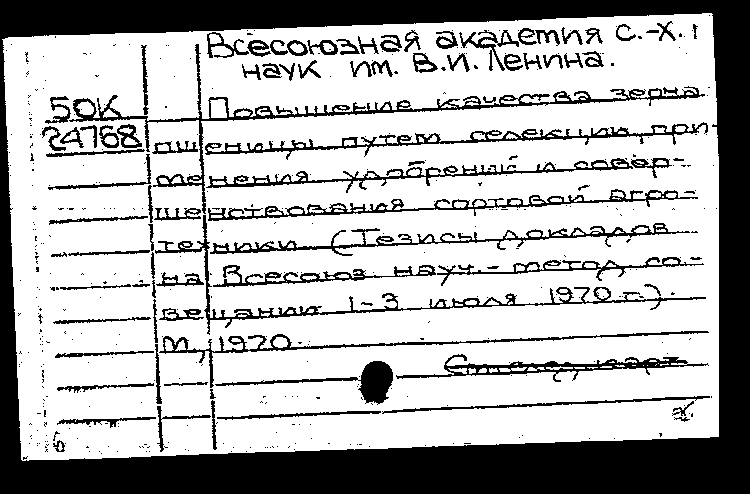 Всесоюзная академия с.-х.
наук им. В.И. Ленина.
50К Повышение качества зерна
24768 пшеницы путем селекции, при-
менения удобрений и совер-
шенствования сортовой агро-
техники (Тезисы докладов
на Всесоюз. науч.-метод. со-
вещании 1-3 июля 1970 г.).
М., 1970.